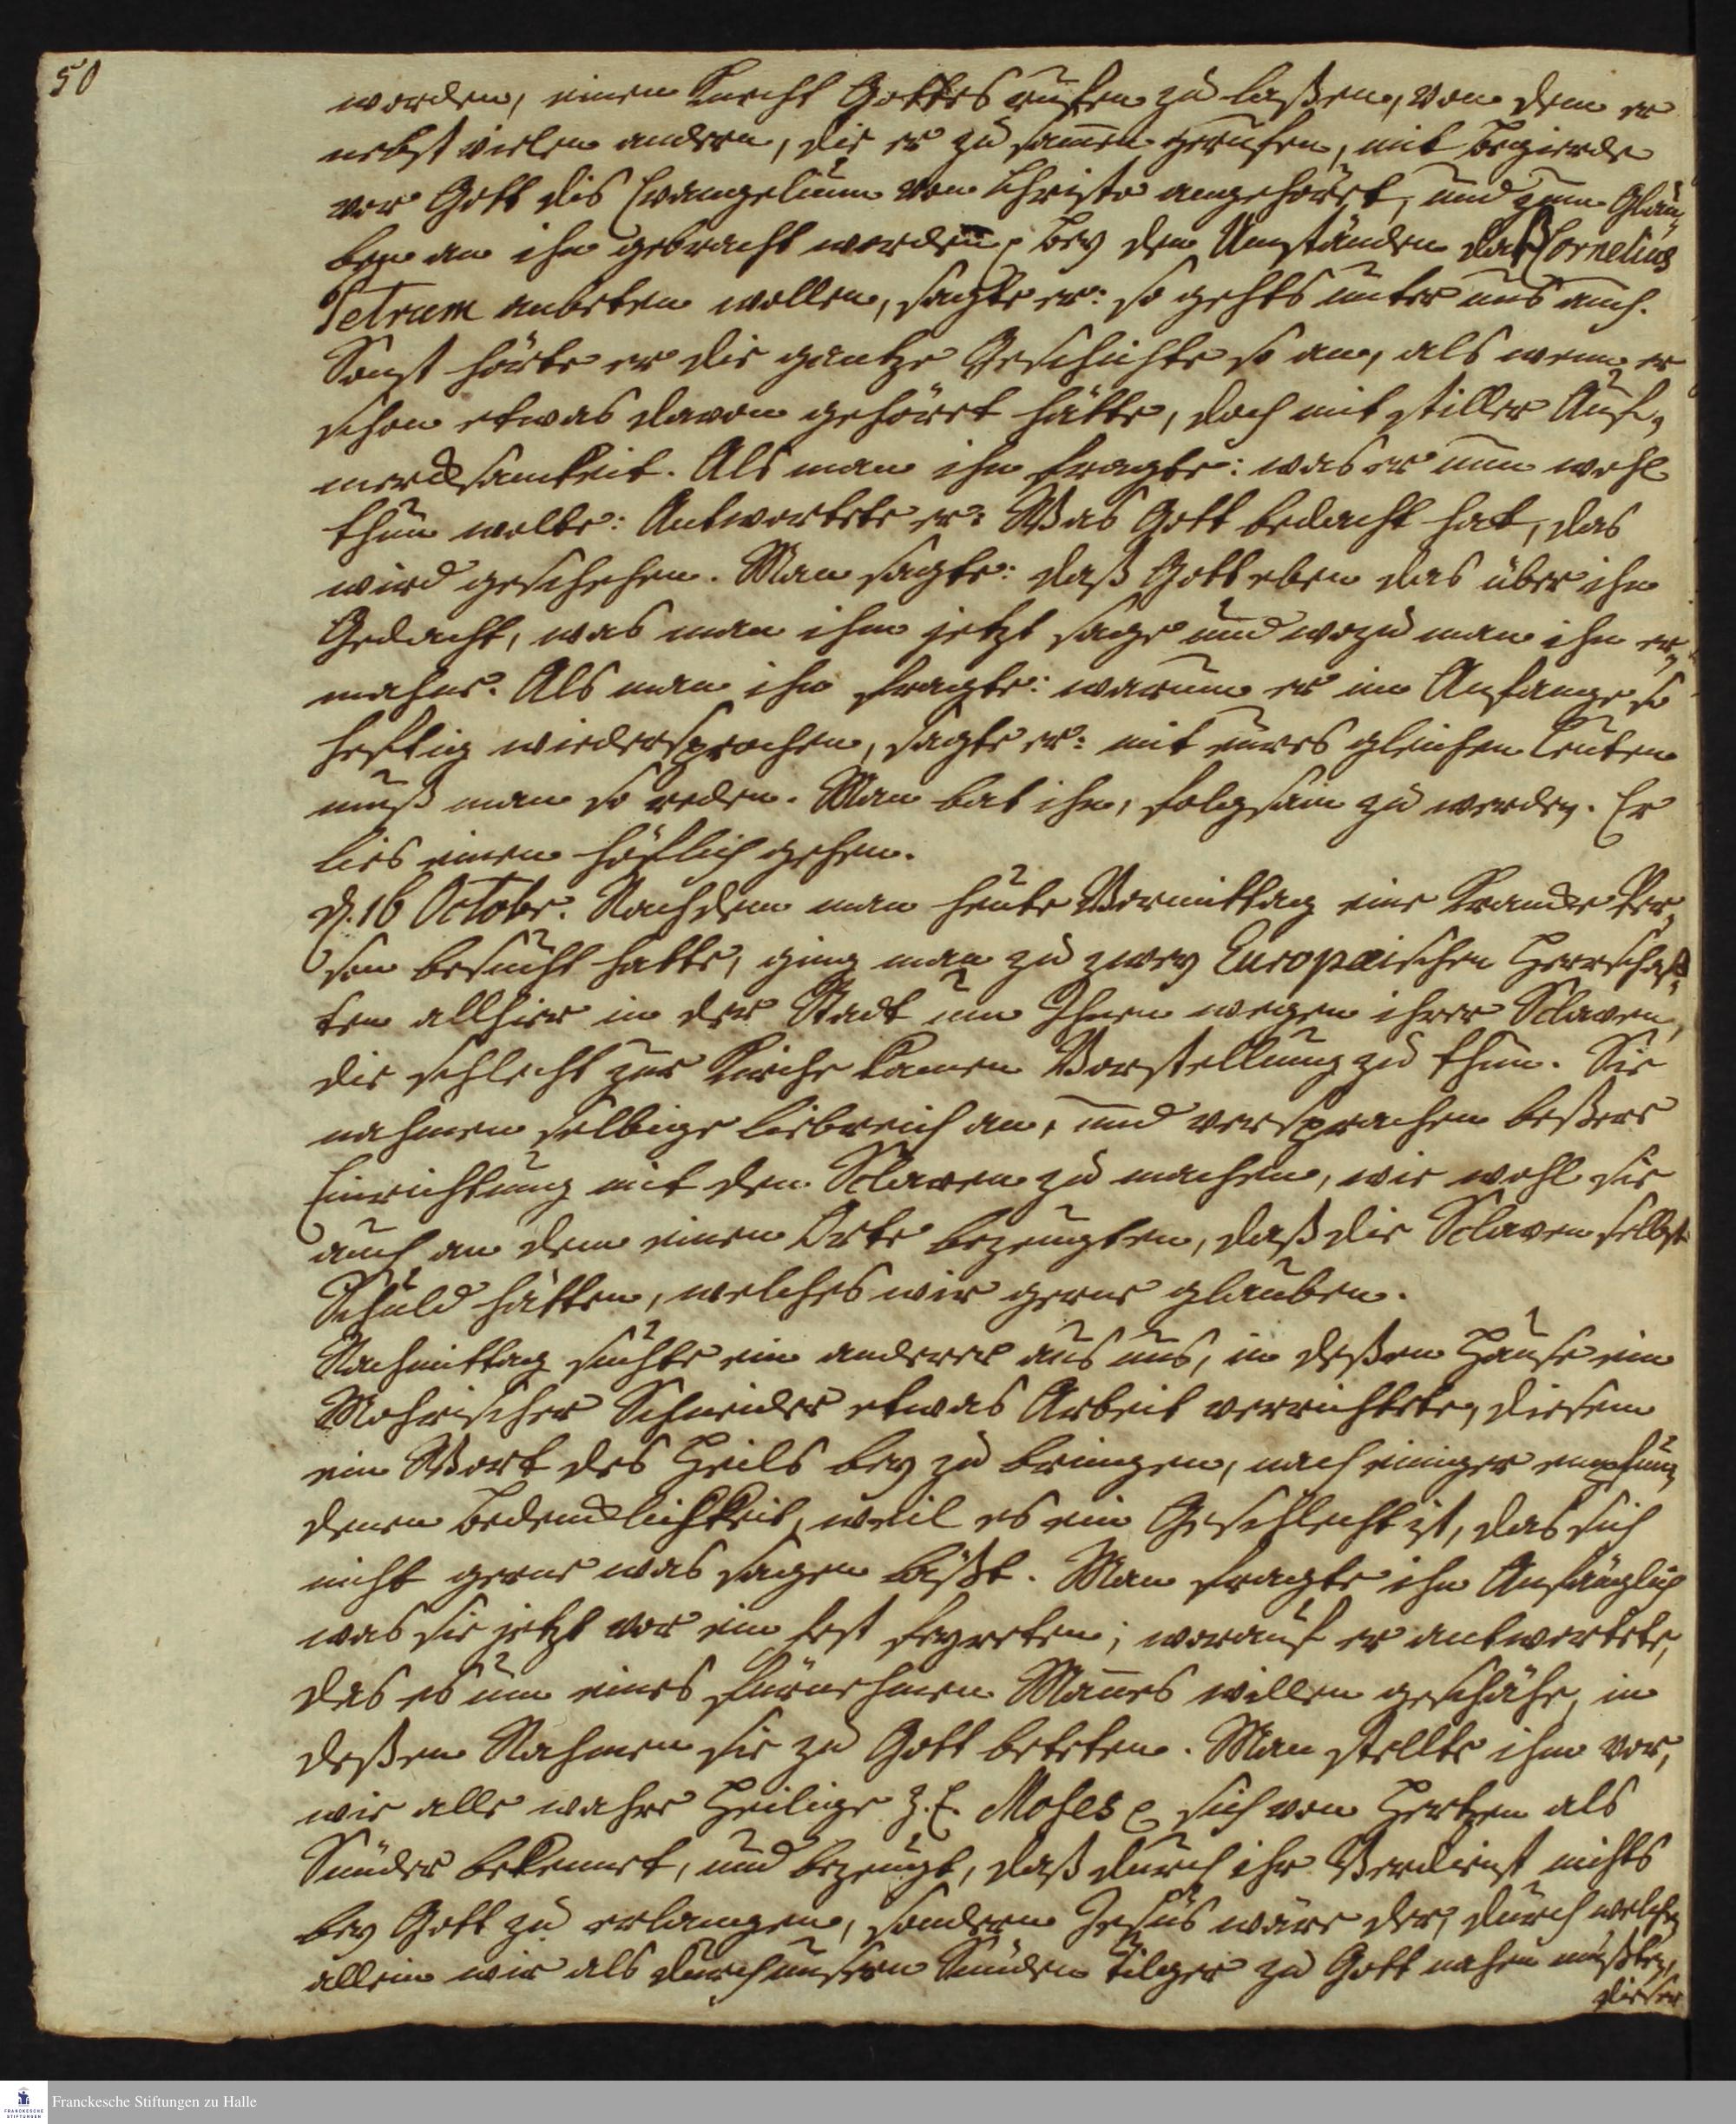 50
worden, einen Knecht Gottes ruffen zu laßen, von dem er
nebst vielen andern, die er zusam̄en geruffen, mit Begierde
vor Gott dis Evangelium von Christo angehöret, und zum Glau-
ben an ihn gebracht worden. Bey den Umständen daß Cornelius
Petrum anbeten wollen, sagte er: so gehts unter uns auch.
Sonst hörte er die gantze Geschichte so an, als wenn er
schon etwas davon gehöret hätte, doch mit stiller Auf-
mercksamkeit. Als man ihn fragte: was er nun wohl
thun wolte: Antwortete er: Was Gott bedacht hat, das
wird geschehen. Man sagte: daß Gott eben das über ihn
Gedacht, was man ihm jetzt sage und wozu man ihn er-
mahne. Als man ihn fragte: warum er im Anfange so
hefftig wiedersprochen, sagte er: mit eures gleichen Leuten
muß man so reden. Man bat ihn, folgsam zu werden. Er
lies einen höflich gehen.
d. 16 Octobr. Nachdem man heute Vormittag eine Krancke Per-
son besucht hatte, ging man zu zwey Europæischen Herrschaf-
ten allhier in der Stadt um Ihnen wegen ihrer Sclaven,
die schlecht zur Kirche kamen Vorstellung zu thun. Sie
nahmen selbige liebreich an, und versprachen beßere
Einrichtung mit den Sclaven zu machen, wie wohl sie
auch an dem einen Orte bezeugten, daß die Sclaven selbst
Schuld hätten, welches wir gerne glauben.
Nachmittag suchte ein anderer aus uns, in deßen Hause ein
Mohrischer Schneider etwas Arbeit verrichtete, diesem
ein Wort des Heils bey zu bringen, nach einiger empfun-
denen Bedencklichkeit, weil es ein Geschlecht ist, das sich
nicht gerne was sagen läßt. Man fragte ihn Anfänglich
was sie jetzt vor ein Fest feyreten; worauf er antwortete,
das es um eines fürnehmen Man̄es willen geschähe, in
deßen Nahmen sie zu Gott beteten. Man stellte ihm vor,
wie alle wahre Heilige z.E. Moses sich von Hertzen als
Sünder bekennet, und bezeugt, daß durch ihr Verdienst nichts
bey Gott zu erlangen, sondern Jesus wäre der, durch welchen
allein wir als durch unsern Sünden Tilger zu Gott nahen müßten,
dieser
Franckesche Stiftungen zu Halle
FRANCKESCHE
STIFTUNGEN